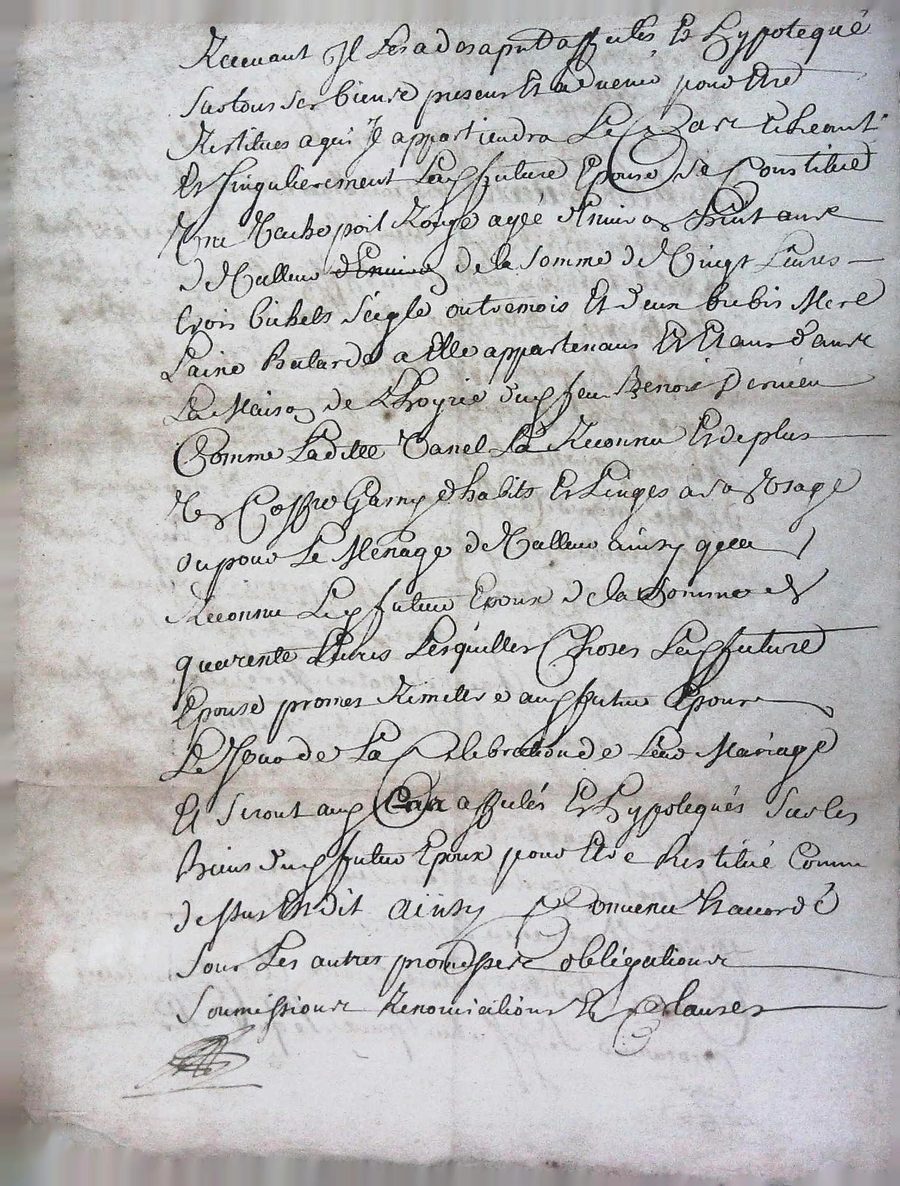 Recevant Il Les a des apnt affectés Et hypotequé
Sur tous ses biens presens Et advenir pour Etre
Restitues a qui Il appartiendra Le Cas Echeant
Et singulierement Lad future Epouse Se Constitue
Une Vache poil Rouge agée d'Environ huit ans
de Valleur de la Somme de Vingt Livres
trois bichets Seigle outremois Et deux brebis Mere
Laine Batarde a Elle appartenans Et Etans dans
La Maison de L'hoyrie dud feu Benoit
Comme Ladite Vanel La Reconnu Et de plus
Un Coffre Garny d'habits Et Linges a son Usage
ou pour Le Menage de Valleur ainsy que
Reconnu Led futur Epoux de la Somme de
quarente Livres Lesquelles Choses Lad future
Epouse promet Remettre aud futur Epoux
Le Jour de La Celebration de Leur Mariage
Et Seront aud Cas affectés Et hypotequés Sur les
Biens dud futur Epoux pour Etre Restitué Comme
dessus Est dit ainsy Convenu Et accordé
Sous Les autres promesses obligations
Soumissions Renonciations Et Clauses